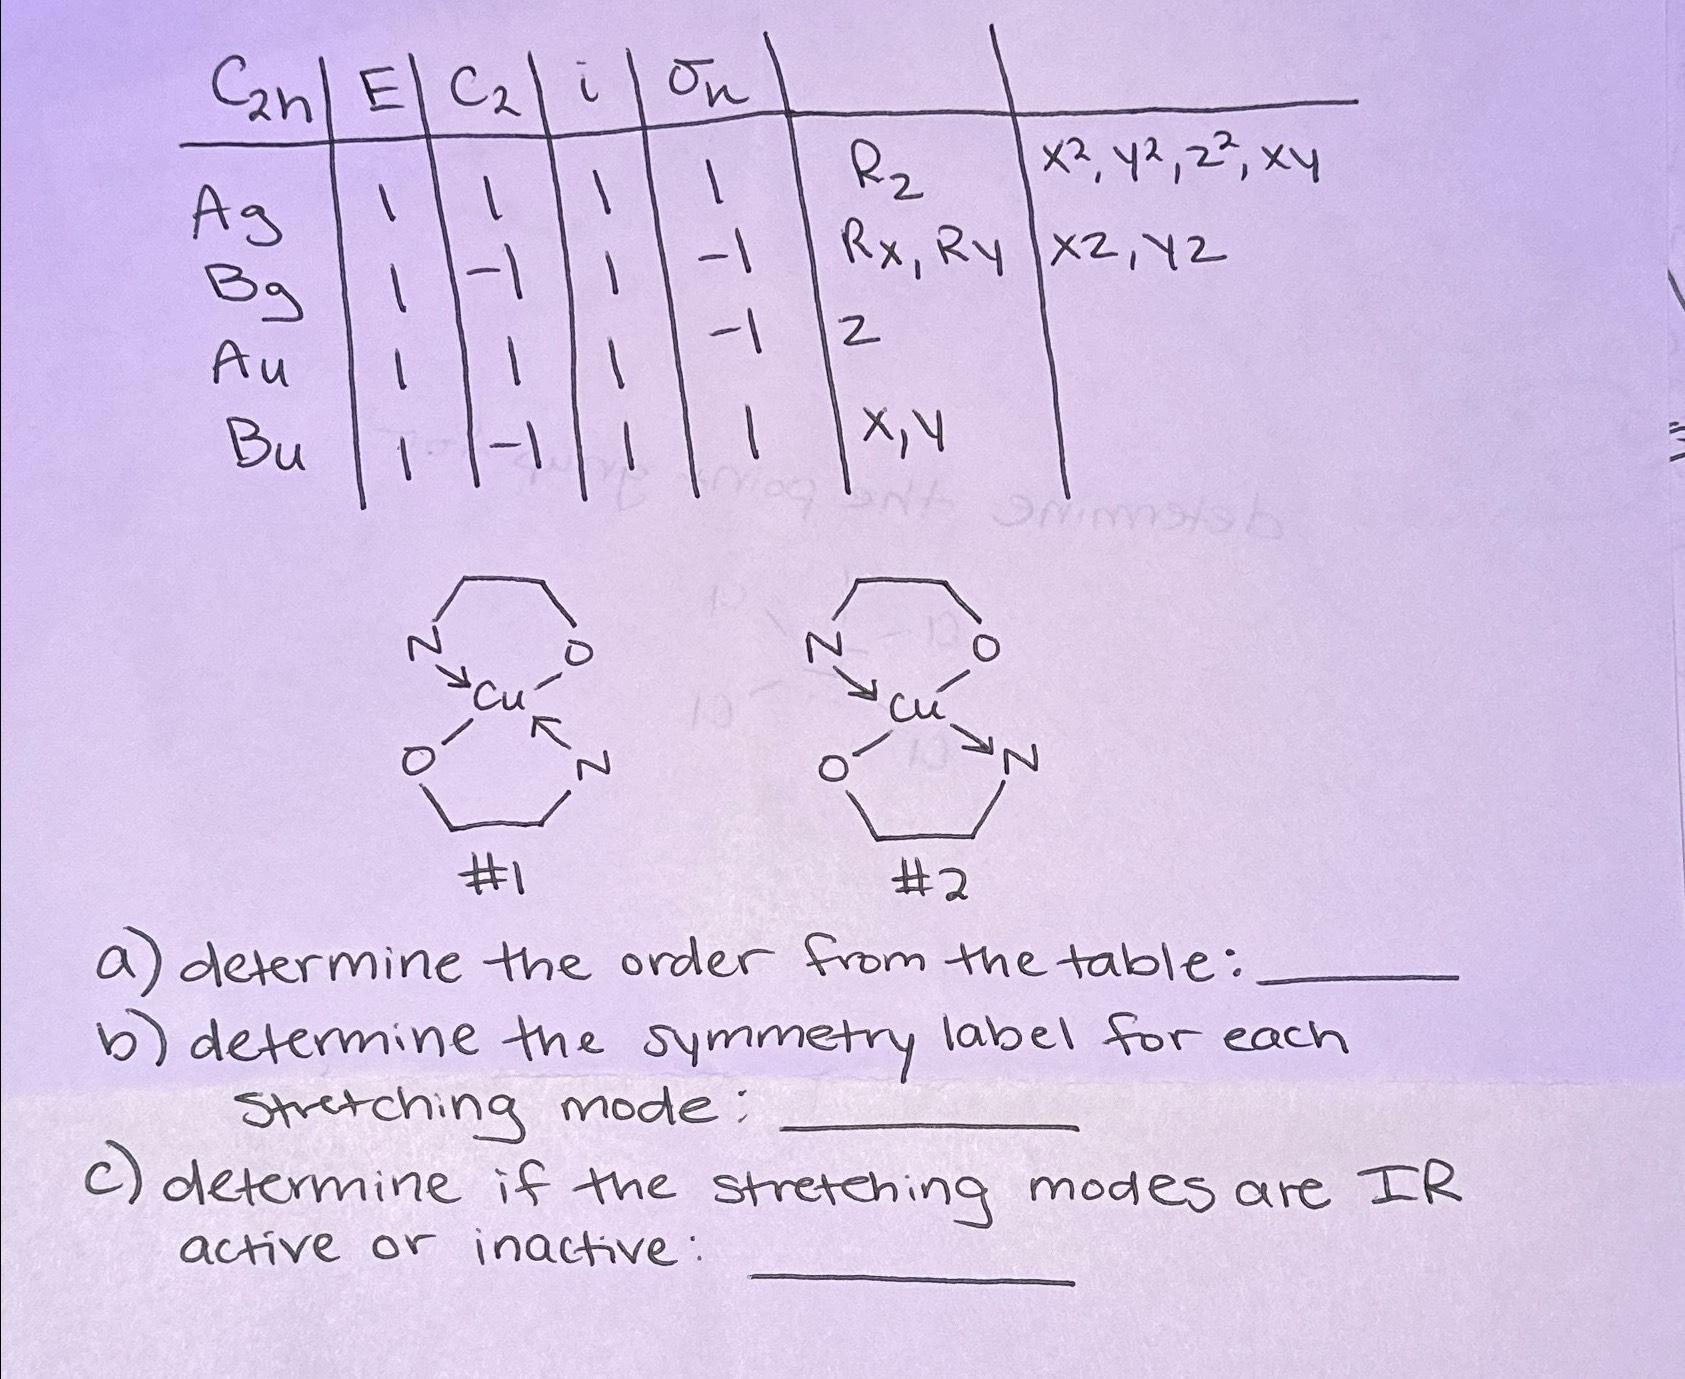 C2h E C2 i σh
Ag 1 1 1 1 Rz x², y², z², xy
Bg 1 -1 1 -1 Rx, Ry xz, yz
Au 1 1 1 -1 z
Bu 1 -1 1 1 x, y
determine the point group
N O N O
Cu Cu
O N O N
#1 #2
a) determine the order from the table: ______
b) determine the symmetry label for each
stretching mode: ______
c) determine if the stretching modes are IR
active or inactive: ______